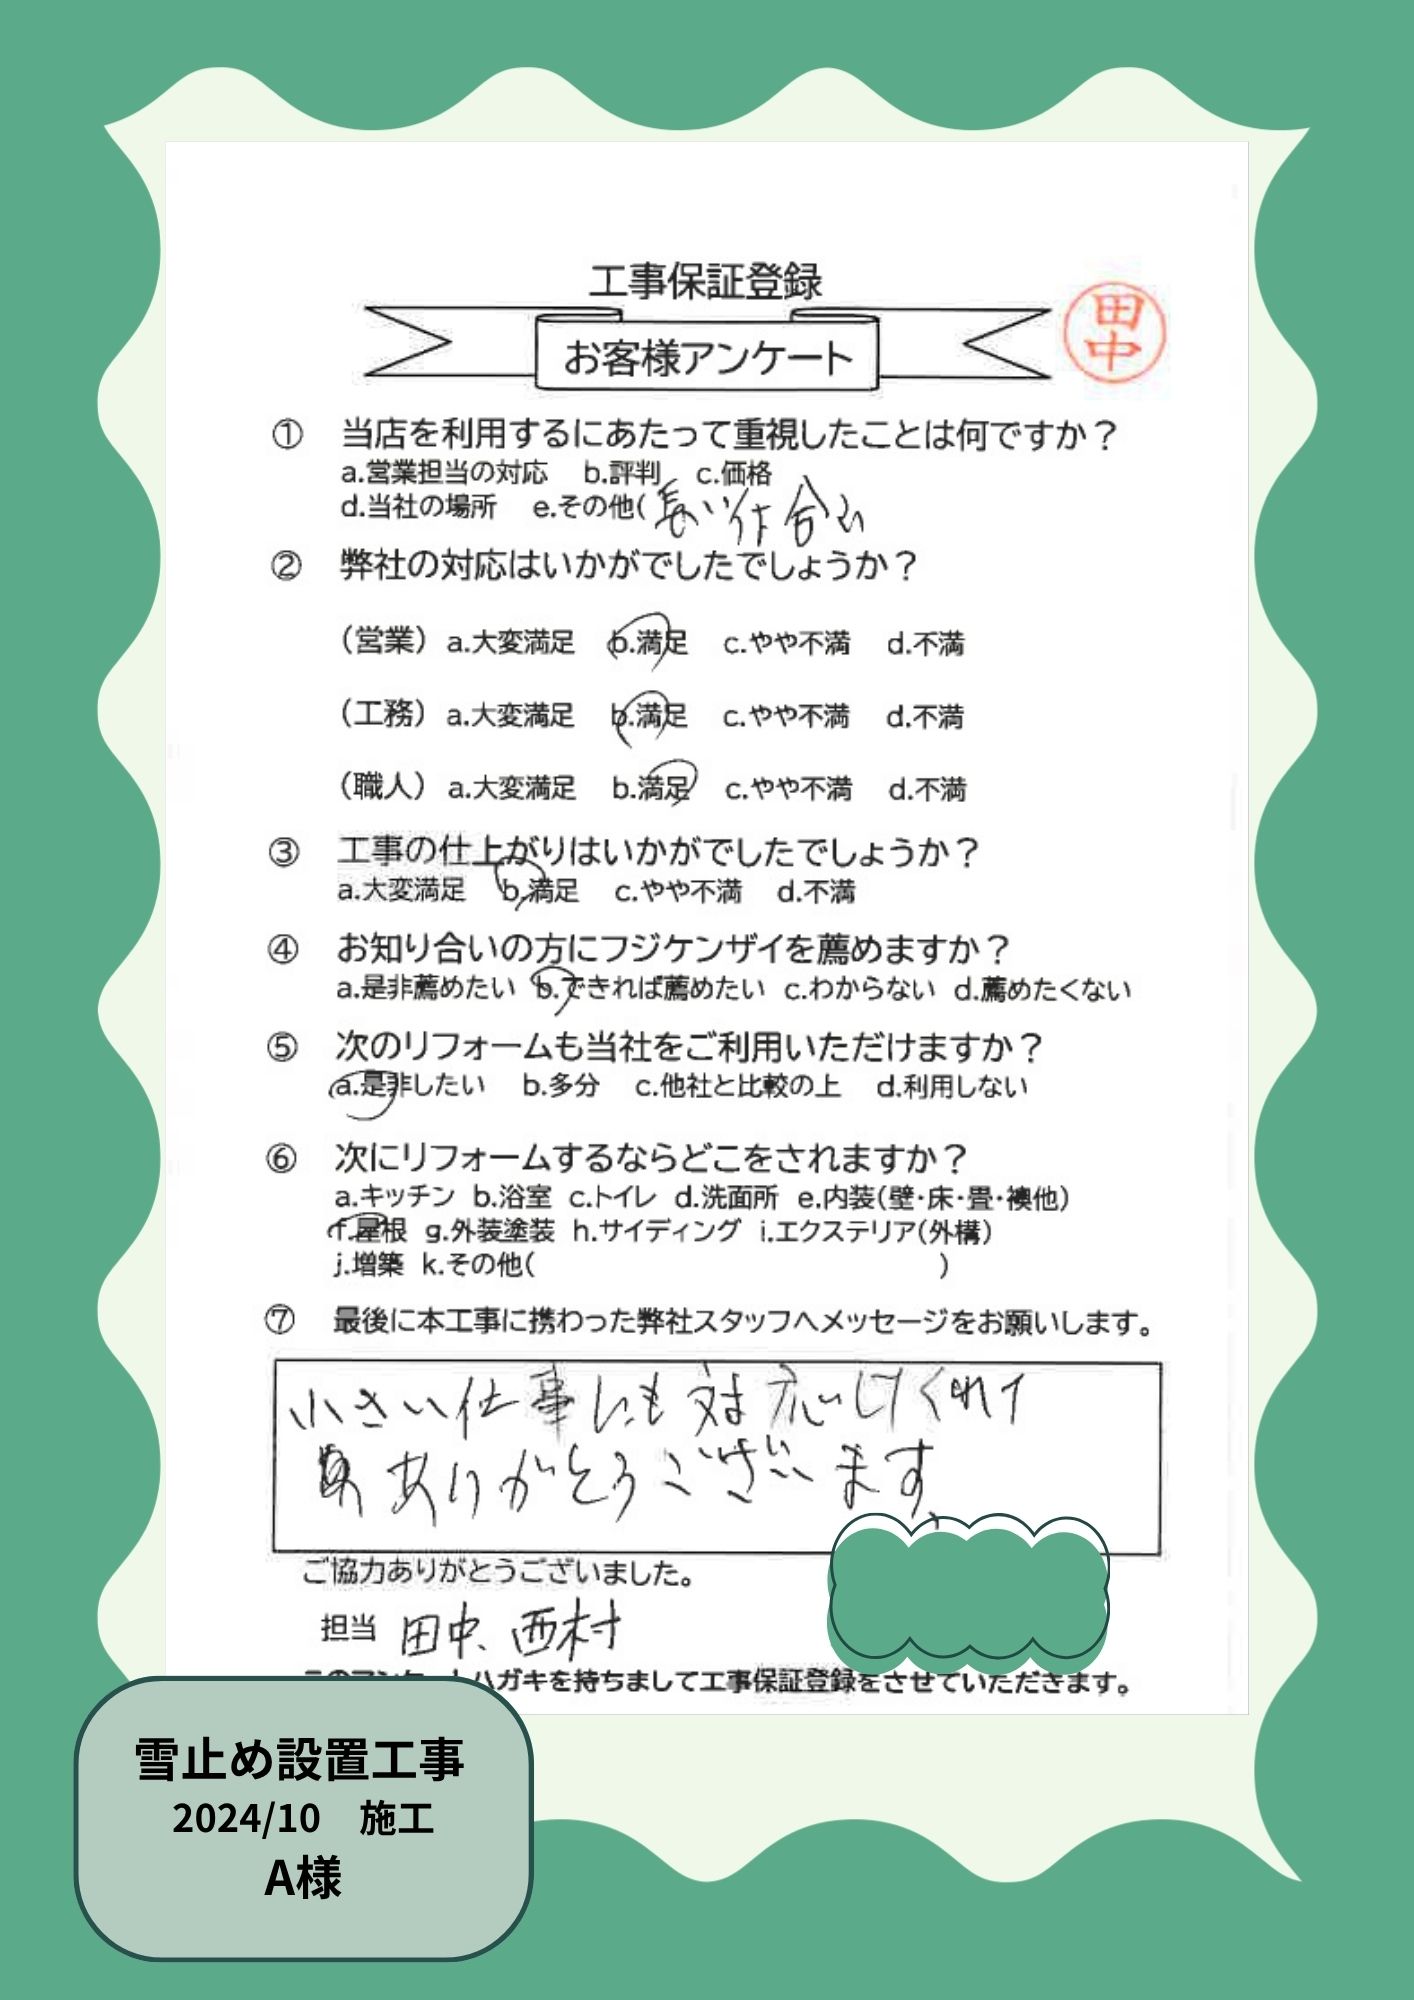 工事保証登録
お客様アンケート
田中
① 当店を利用するにあたって重視したことは何ですか？
a.営業担当の対応 b.評判 c.価格
d.当社の場所 e.その他( 長い付合い
② 弊社の対応はいかがでしたでしょうか？
（営業）a.大変満足 b.満足 c.やや不満 d.不満
（工務）a.大変満足 b.満足 c.やや不満 d.不満
（職人）a.大変満足 b.満足 c.やや不満 d.不満
③ 工事の仕上がりはいかがでしたでしょうか？
a.大変満足 b.満足 c.やや不満 d.不満
④ お知り合いの方にフジケンザイを薦めますか？
a.是非薦めたい b.できれば薦めたい c.わからない d.薦めたくない
⑤ 次のリフォームも当社をご利用いただけますか？
a.是非したい b.多分 c.他社と比較の上 d.利用しない
⑥ 次にリフォームするならどこをされますか？
a.キッチン b.浴室 c.トイレ d.洗面所 e.内装(壁・床・畳・襖他)
f.屋根 g.外装塗装 h.サイディング i.エクステリア(外構)
j.増築 k.その他( )
⑦ 最後に本工事に携わった弊社スタッフへメッセージをお願いします。
小さい仕事にも対応してくれて
ありがとうございます、
ご協力ありがとうございました。
担当 田中、西村
ハガキを持ちまして工事保証登録をさせていただきます。
雪止め設置工事
2024/10 施工
A様